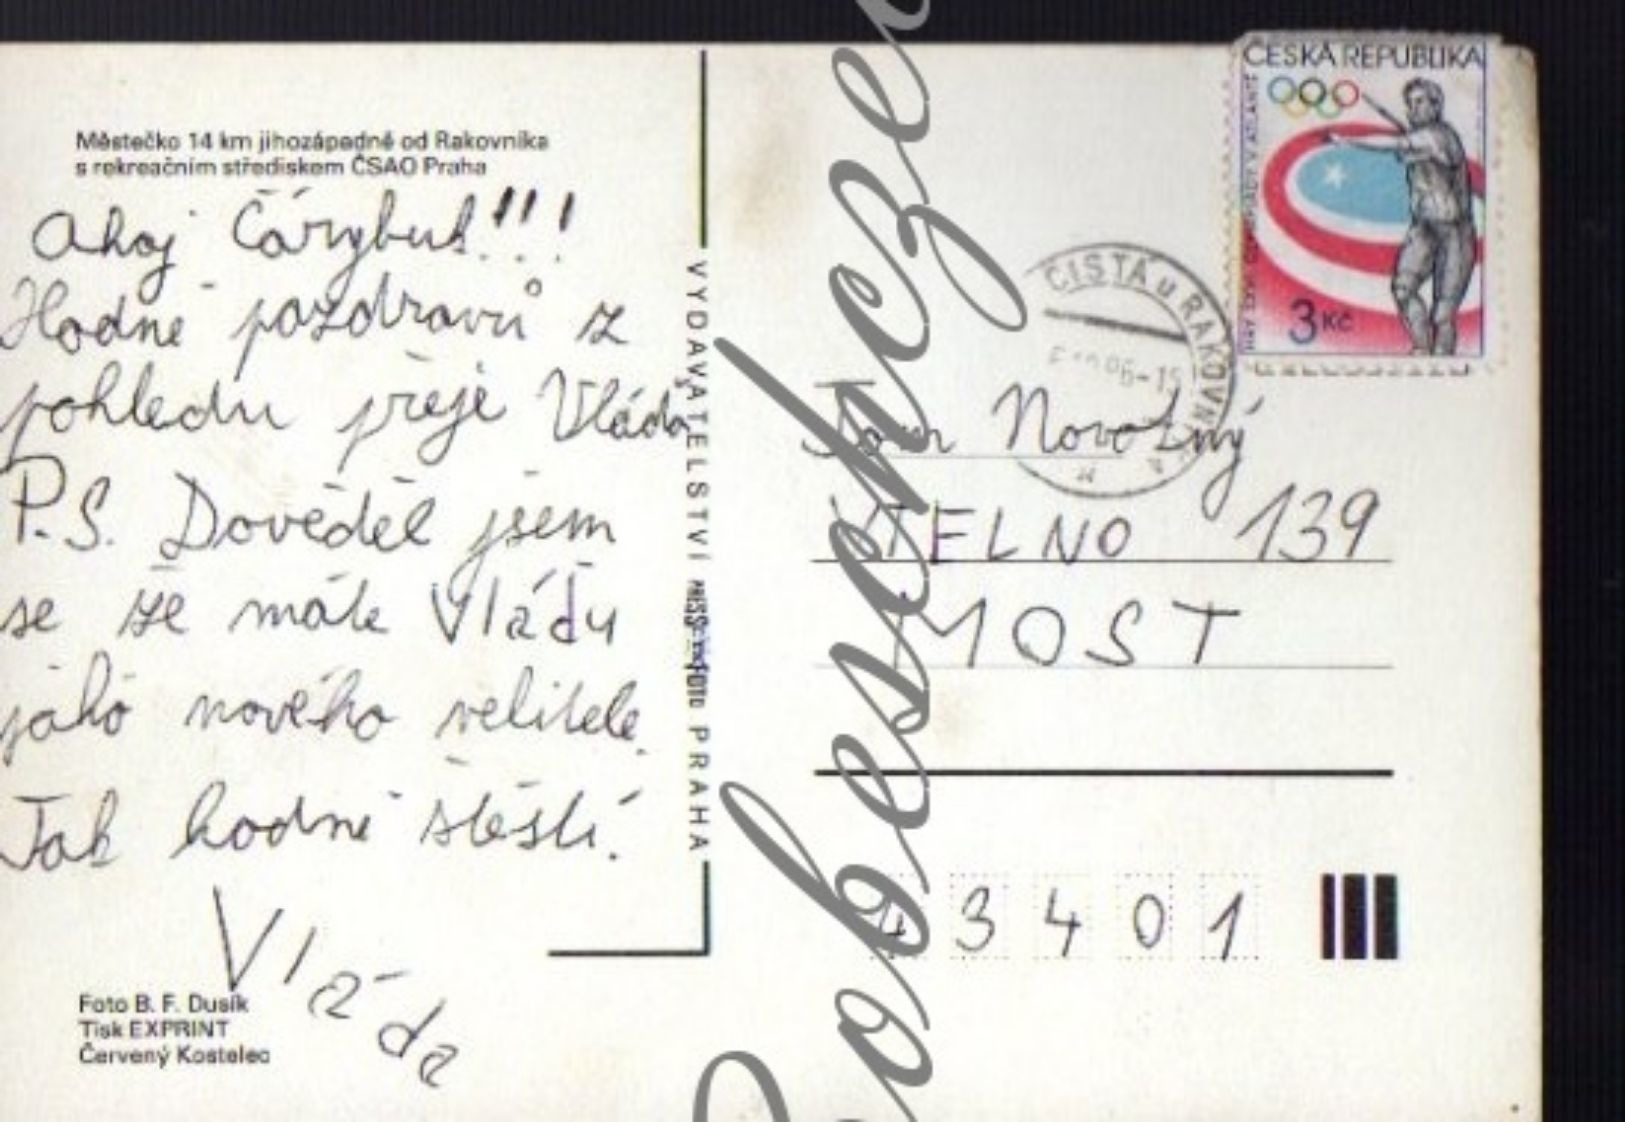 Městečko 14 km jihozápadně od Rakovníka
s rekreačním střediskem ČSAO Praha
Ahoj Čárybuk!!!
Hodně pozdravů z
pohledu přeje Vláďa
P.S. Dověděl jsem
se že máte Vláďu
jako nového velitele.
Tak hodně štěstí.
Vláďa
Foto B. F. Dusík
Tisk EXPRINT
Červený Kostelec
VYDAVATELSTVÍ PRESSFOTO PRAHA
ČESKÁ REPUBLIKA
HRY XXVI. OLYMPIÁDY V ATLANTĚ
3 Kč
ČISTÁ u RAKOVNÍKA
Tom Novotný
VTELNO 139
MOST
43401